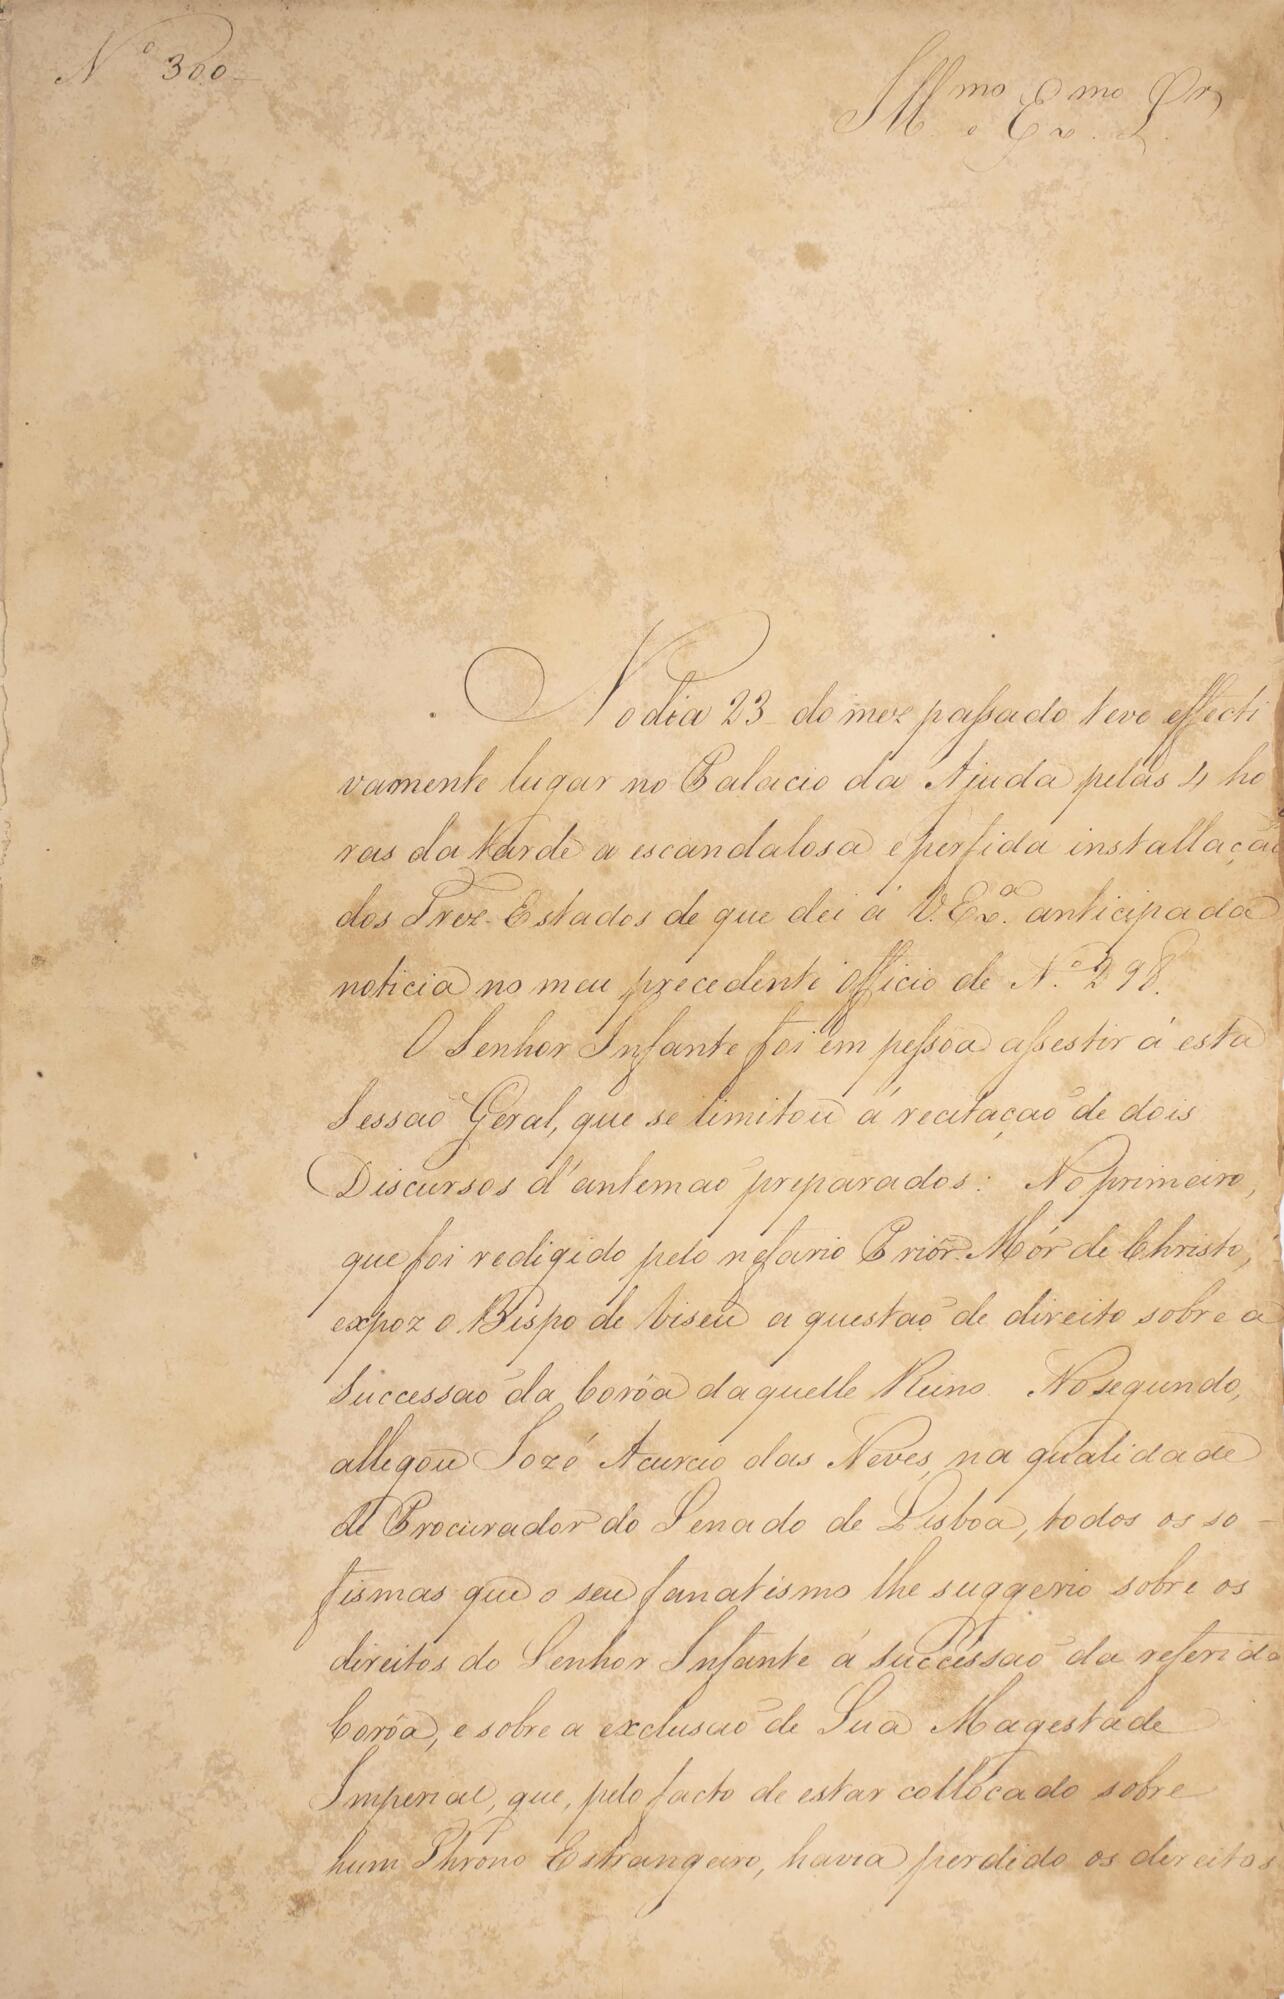 Nº 300
Illmo. e Exmo. Sr.
No dia 23 do mez passado teve effecti
vamente lugar no Palacio da Ajuda pelas 4 ho
ras da tarde a escandalosa e perfida installação
dos Trez Estados de que dei á V. Exª. anticipada
noticia no meu precedente Officio de Nº 298.
O Senhor Infante foi em pessôa assestir á esta
Sessaõ Geral, que se limitou á recitaçaõ de dois
Discursos d'antemaõ preparados: No primeiro,
que foi redigido pelo nefario Priôr Mór de Christo,
expoz o Bispo de Viseu a questaõ de direito sobre a
Successaõ da Corôa daquelle Reino. No segundo,
allegou Jozé Acurcio das Neves, na qualidade
de Procurador do Senado de Lisboa, todos os so-
fismas que o seu fanatismo lhe suggerio sobre os
direitos do Senhor Infante á successaõ da referida
Corôa, e sobre a exclusaõ de Sua Magestade
Imperial, que, pelo facto de estar collocado sobre
hum Throno Estrangeiro, havia perdido os direitos